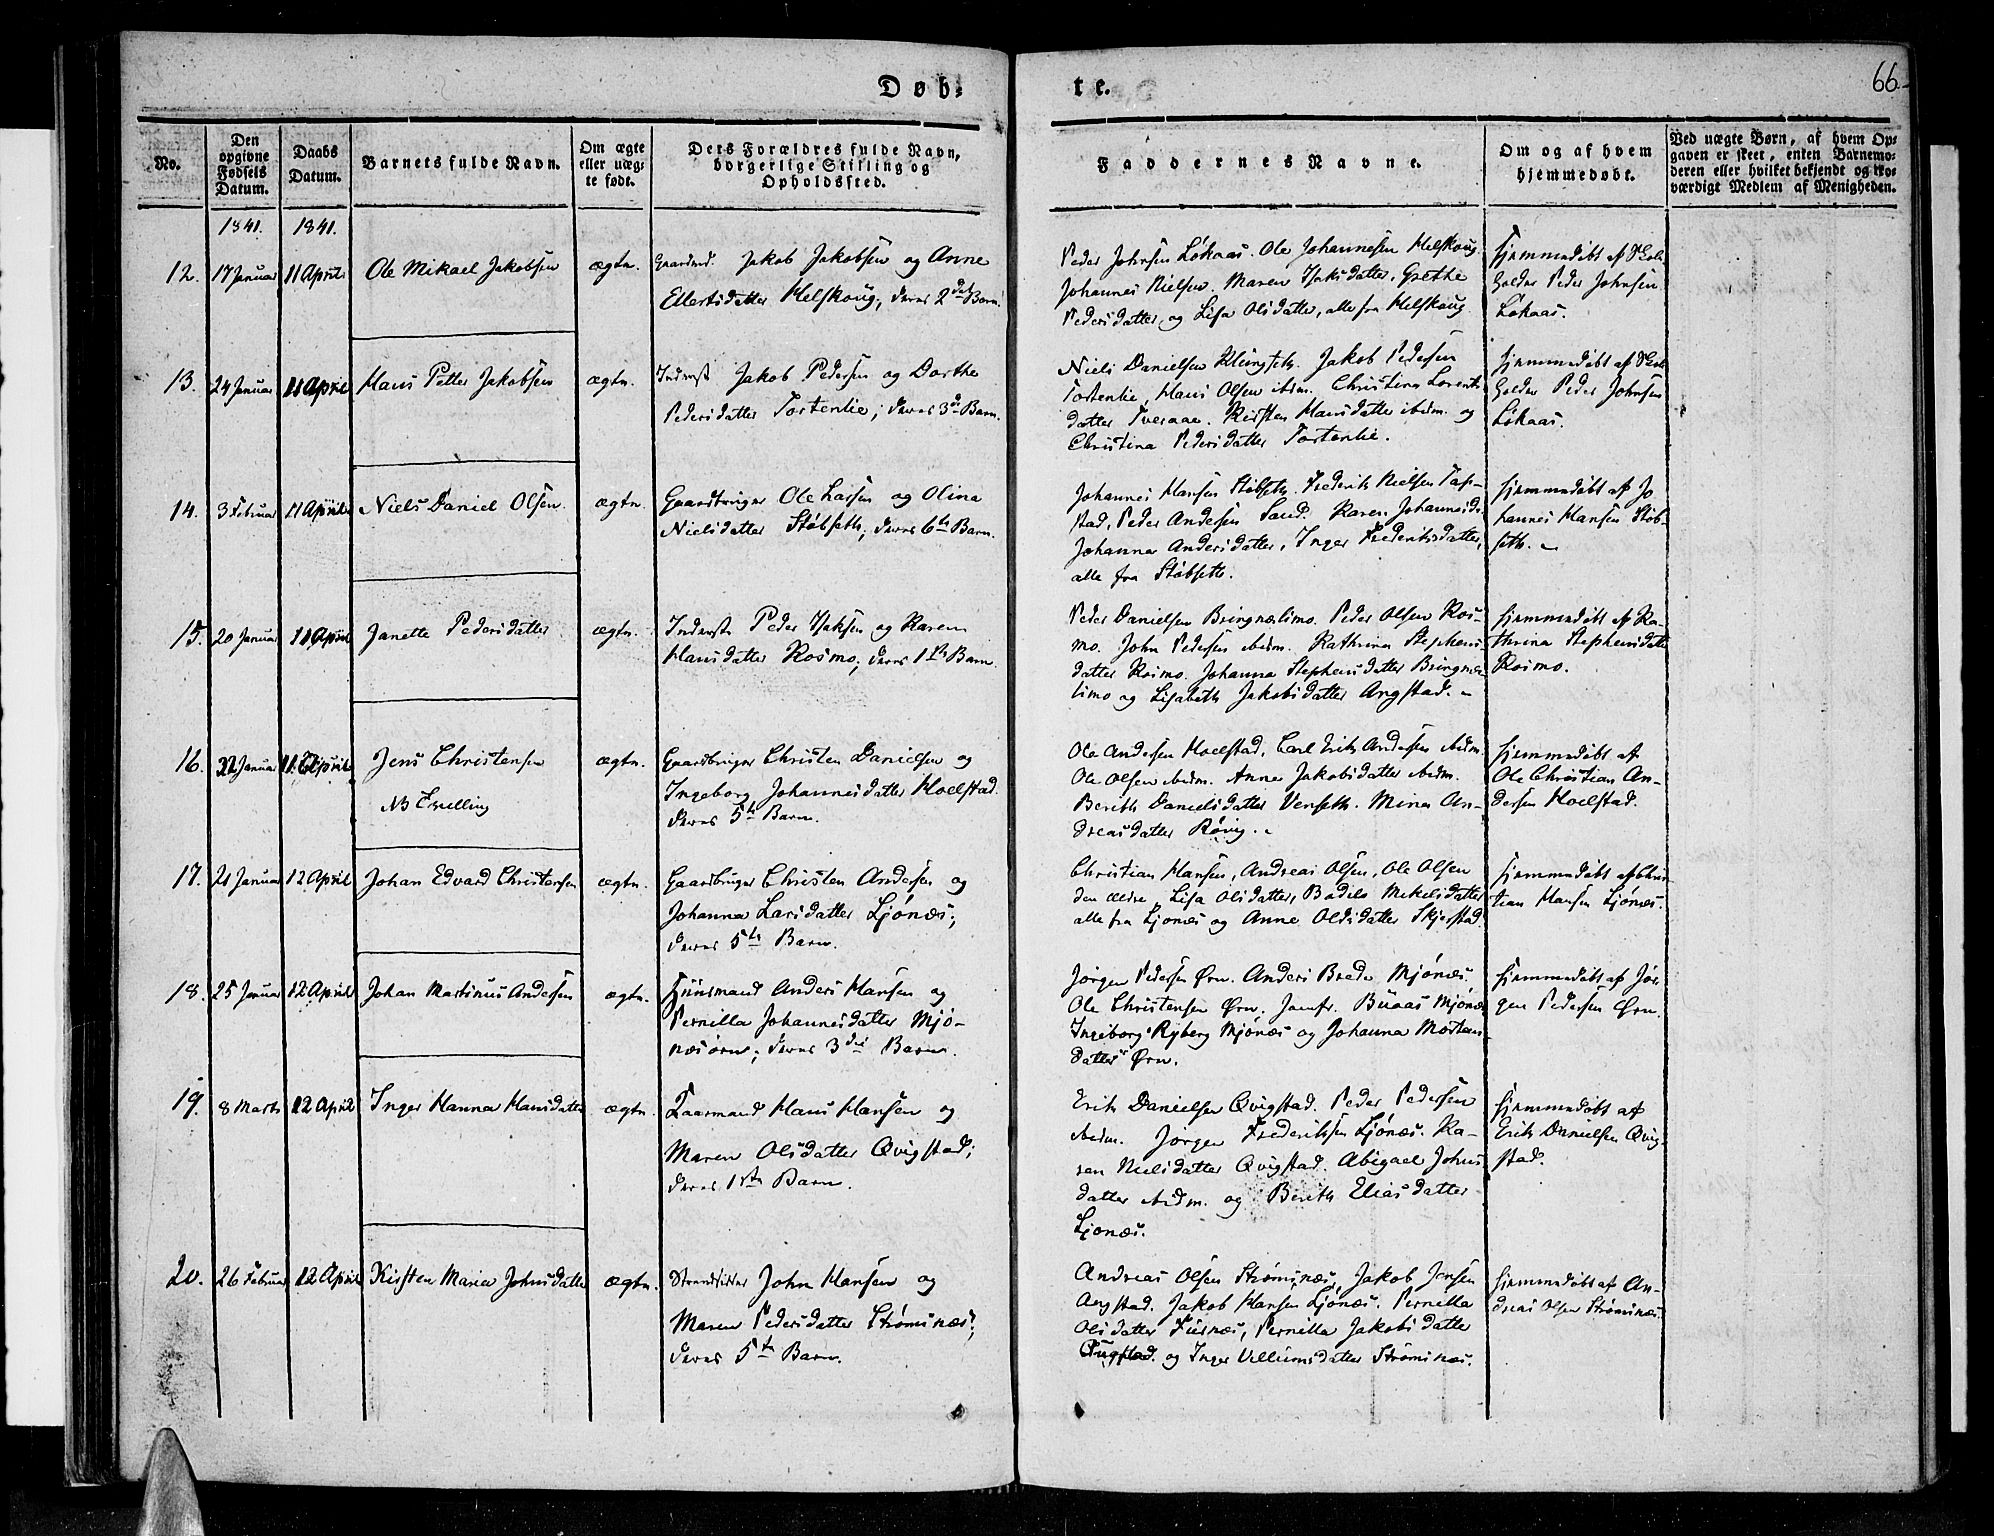 Døb-
te.
66
No.
Den
opgivne
Fødsels
Datum.
Daabs
Datum.
Barnets fulde Navn.
Om ægte
eller uæg-
te født.
Dets Forældres fulde Navn,
borgerlige Stilling og
Opholdssted.
Faddernes Navne.
Om og af hvem
hjemmedøbt.
Ved uægte Børn, af hvem Op-
gaven er skeet, enten Barnemo-
deren eller hvilket bekjendt og tro-
værdigt Medlem af Menigheden.
1841.
1841.
12.
17 Januar
11 April
Ole Mikael Jakobsen
ægte.
Gaardmd. Jakob Jakobsen og Anne
Ellertsdatter Helskoug, deres 2det Barn.
Peder Johnsen Løkaas. Ole Johannesen Helskoug.
Johannes Nielsen. Maren Isaksdatter, Grethe
Pedersdatter, og Lisa Olsdatter, alle fra Helskoug.
hjemmedøbt af Skol-
holder Peder Johnsen
Løkaas.
13.
24 Januar
11 April
Hans Petter Jakobsen
ægte.
Inderst Jakob Pedersen og Dorthe
Pedersdatter Tortenlie; deres 3de Barn.
Niels Danielsen Klungseth. Jakob Pedersen
Tortenlie, Hans Olsen ibdm. Christina Lorents-
datter Tveraae. Kirsten Hansdatter ibidm. og
Christina Pedersdatter Tortenlie.
hjemmedøbt af Skol-
holder Peder Johnsen
Løkaas.
14.
3 Februar
11 April
Niels Daniel Olsen.
ægte.
Gaardbruger Ole Larsen og Olina
Nielsdatter Støbseth; deres 6te Barn.
Johannes Hansen Støbseth. Frederik Nielsen
stad, Peder Andersen Sand. Karen Johannesdr.
Johanna Andersdatter, Inger Frederiksdatter,
alle fra Støbseth.
hjemmedøbt af Jo
hannes Hansen Støb-
seth. –
15.
20 Januar
11 April
Janette Pedersdatter
ægte.
Inderst Peder Isaksen og Karen
Hansdatter Rosmo; deres 1ste Barn.
Peder Danielsen Bringnælimo. Peder Olsen Ros-
mo. John Pedersen ibidm. Kathrina Stephens-
datter Rosmo. Johanna Stephensdatter Bringnæ-
limo og Lisabeth Jakobsdatter Angstad. –
hjemmedøbt af Ka-
thrina Stephensdatter
Rosmo.
16.
22 Januar
11 April
Jens Christensen
NB Tvilling
ægte.
Gaardbruger Christen Danielsen og
Ingeborg Johannesdatter Hoelstad.
deres 5te Barn.
Ole Andersen Hoelstad, Carl Erik Andersen ibidm.
Ole Olsen ibidm. Anne Jakobsdatter ibidm.
Berith Danielsdatter Venseth. Mina An-
dreasdatter Røvig. –
hjemmedøbt af
Ole Christian An-
dersen Hoelstad.
17.
21 Januar
12 April
Johan Edvard Christensen
ægte.
Gaardbruger Christen Andersen og
Johanna Larsdatter Ljønæs;
deres 5te Barn.
Christian Hansen, Andreas Olsen, Ole Olsen
den ældre, Lisa Olsdatter, Bodele Mikelsdatter
alle fra Ljønæs og Anne Olesdatter Skjerstad.
hjemmedøbt af Chris-
tian Hansen Ljønæs.
18.
25 Januar
12 April
Johan Martinus Andersen
ægte.
Huusmand Anders Hansen og
Pernilla Johannesdatter Mjø-
næsørn; deres 3die Barn.
Jørgen Pedersen Ørn. Anders Brede Mjønæs.
Ole Christensen Ørn. Jomfr. Buaas Mjønæs
Ingeborg Ryberg Mjønæs og Johanna Mortens-
datter Ørn.
hjemmedøbt af Jør-
gen Pedersen Ørn.
19.
8 Marts
12 April
Inger Hanna Hansdatter
ægte.
Hans Hansen og
Maren Olsdatter Qvigstad;
deres 1ste Barn.
Erik Danielsen Qvigstad. Peder Pedersen
ibidm. Jørgen Frederiksen Ljønæs. Ka-
ren Nielsdatter Qvigstad. Abigael Johns-
datter ibidm. og Berith Eliasdatter
Ljonæs.
hjemmedøbt af
Erik Danielsen Qvig-
stad.
20.
26 Februar
12 April
Kirsten Maria Johnsdatter
ægte.
Strandsidder John Hansen og
Maren Pedersdatter Strømsnæs;
deres 5te Barn.
Andreas Olsen Strømsnæs, Jakob Jensen
Angstad. Jakob Hansen Ljønæs. Pernilla
Olsdatter Fuirnæs, Pernilla Jakobsdatter
og Inger Villumsdatter Strømsnæs.
hjemmedøbt af An-
dreas Olsen Strømsnæs.